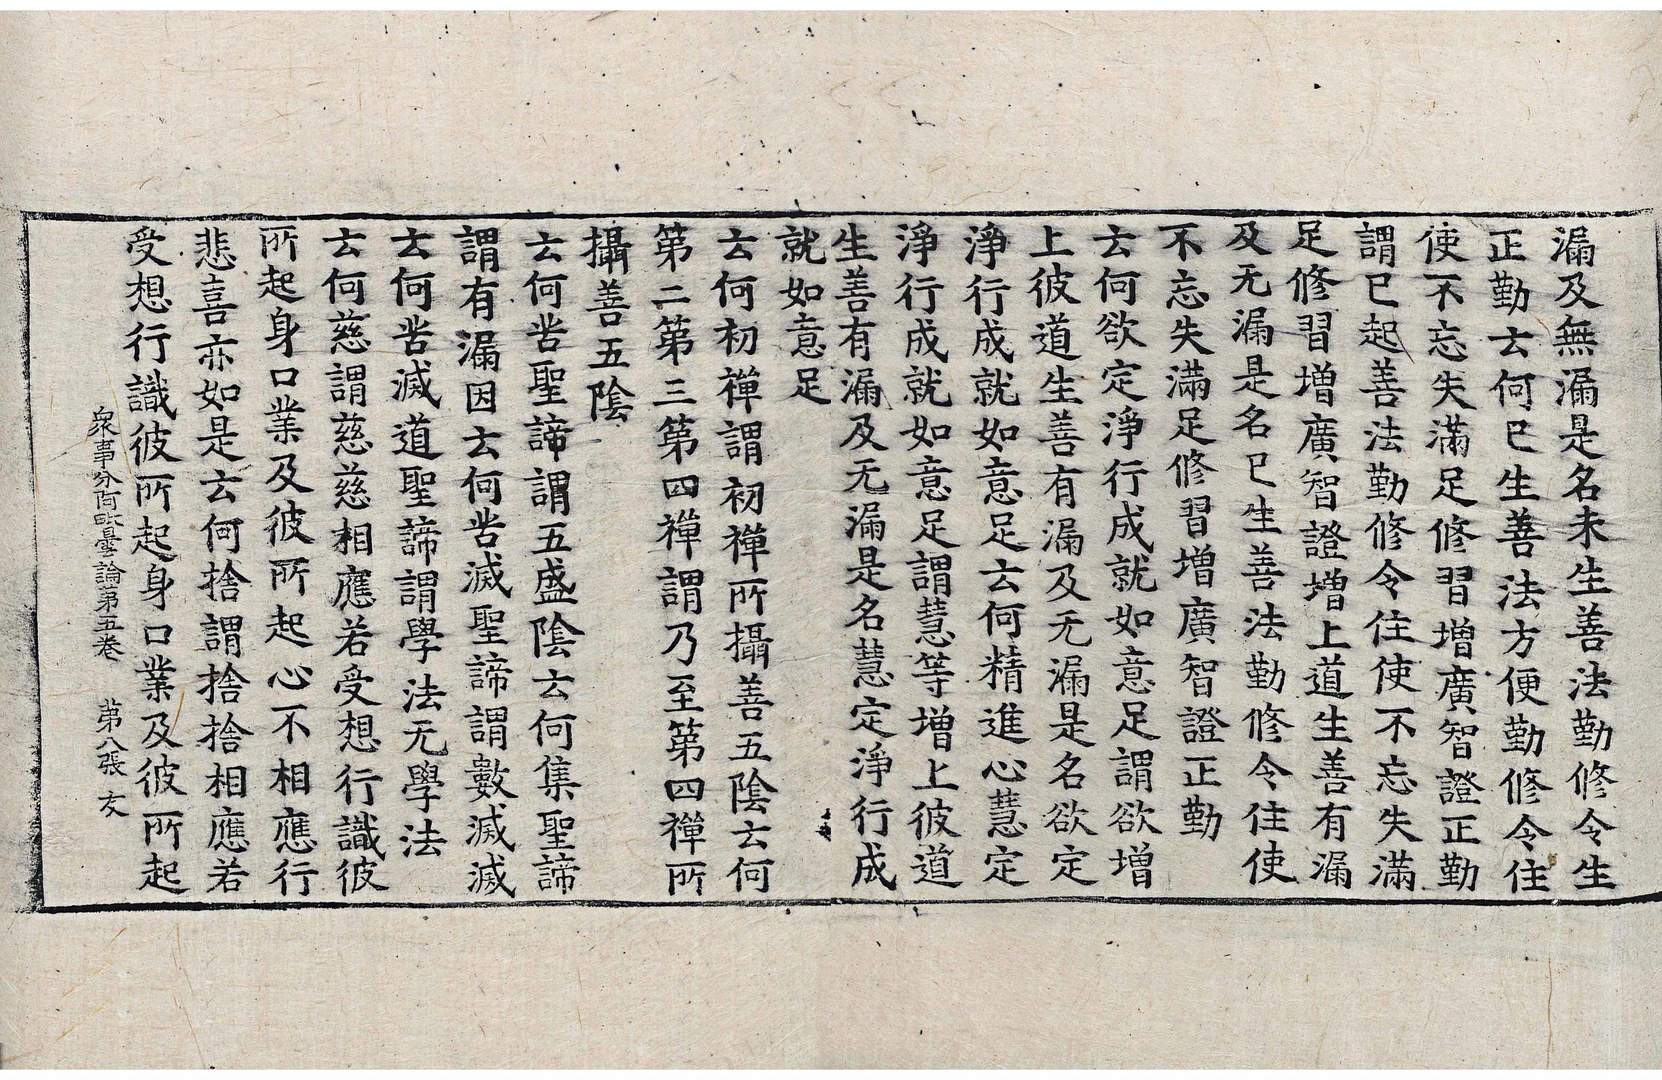 漏及無漏是名未生善法勤修令生
正勤去何已生善法方便勤修令住
使不忘失滿足修習增廣智證正勤
謂已起善法勤修令住使不忘失滿
足修習增廣智證增上道生善有漏
及无漏是名已生善法勤修令住使
不忘失滿足修習增廣智證正勤
去何欲定淨行成就如意足謂欲增
上彼道生善有漏及无漏是名欲定
淨行成就如意足去何精進心慧定
淨行成就如意足謂慧等增上彼道
生善有漏及无漏是名慧定淨行成
就如意足
去何初禪謂初禪所攝善五陰去何
第二第三第四禪謂乃至第四禪所
攝善五陰
去何苦聖諦謂五盛陰去何集聖諦
謂有漏因去何苦滅聖諦謂數滅滅
去何苦滅道聖諦謂學法无學法
去何慈謂慈慈相應若受想行識彼
所起身口業及彼所起心不相應行
悲喜亦如是去何捨謂捨捨相應若
受想行識彼所起身口業及彼所起
衆事分阿毗曇論第五卷 第八張 友